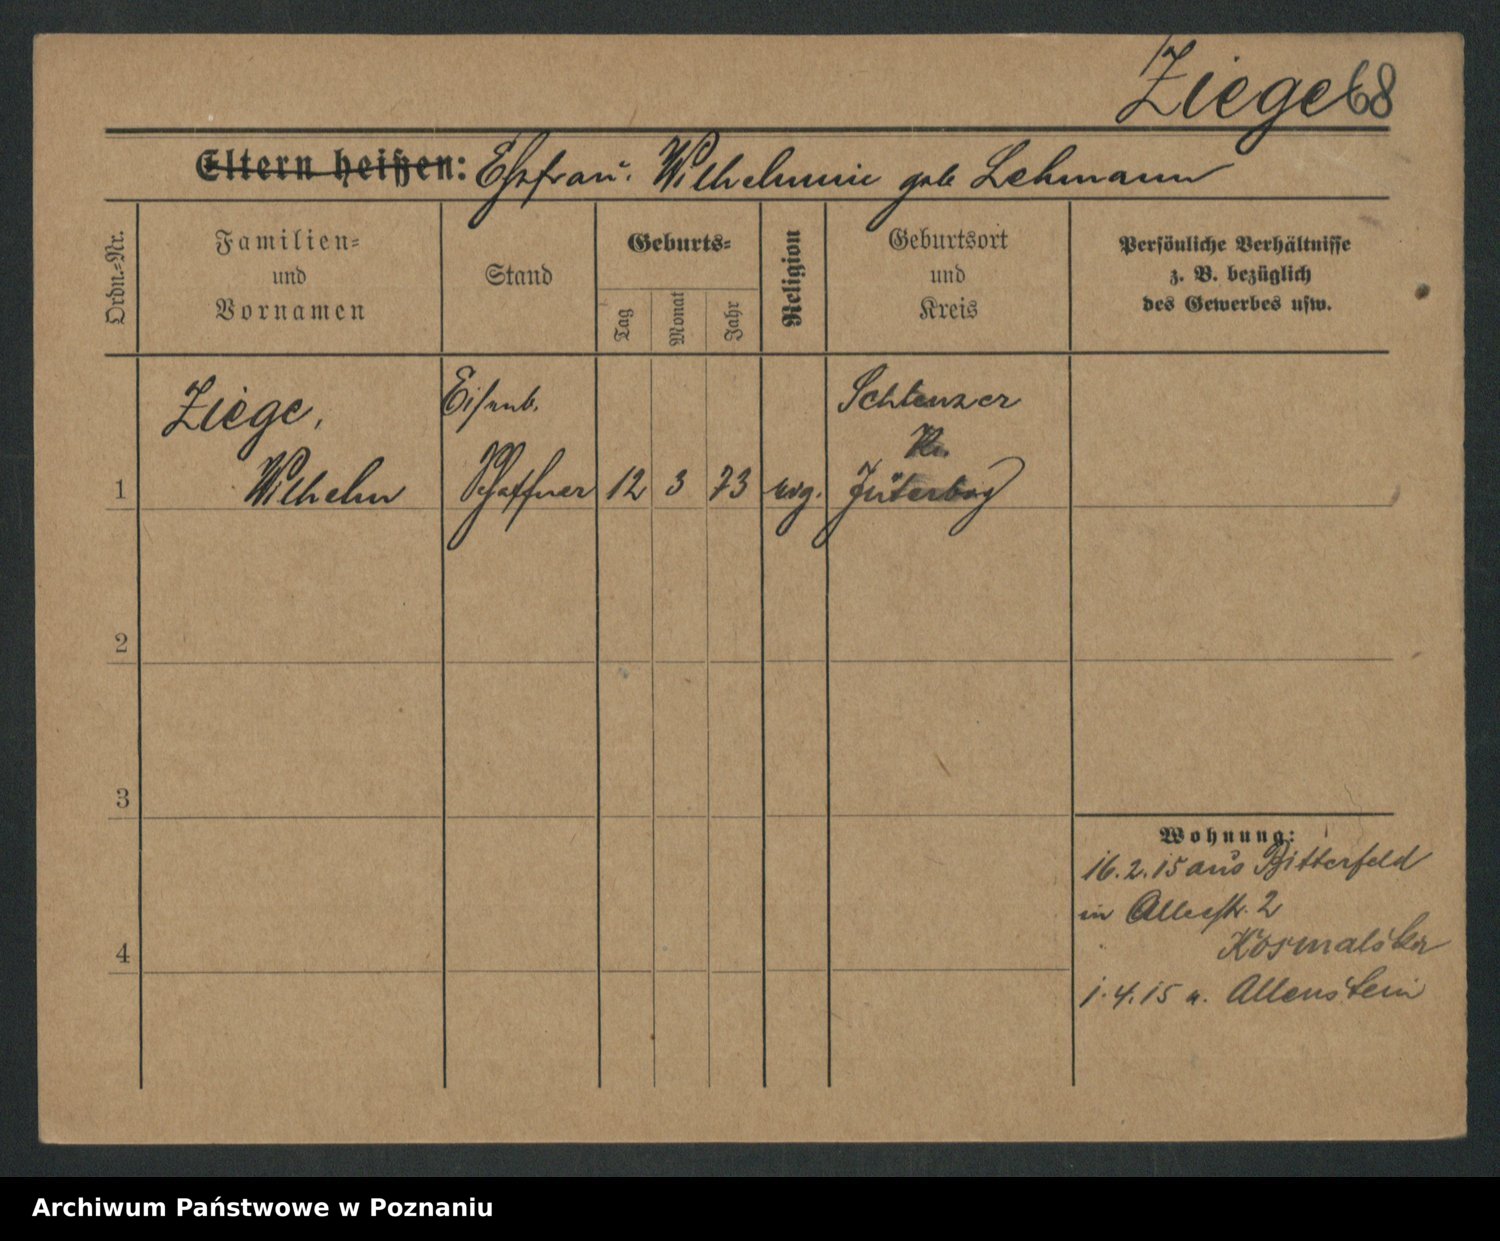 Ziege 68
Eltern heißen: Ehefrau. Wilhelmine geb Lehmann
Ordn.=Nr.
Familien=
und
Vornamen
Stand
Geburts=
Tag
Monat
Jahr
Religion
Geburtsort
und
Kreis
Persönliche Verhältnisse
z. B. bezüglich
des Gewerbes usw.
Ziege,
Eisenb.
Schlenzer
Kr.
1 Wilhelm Schaffner 12 3 73 evg. Jüterbog
2
3
4
Wohnung:
16.2.15 aus Bitterfeld
in Alleestr. 2
1.4.15 n. Allenstein
Archiwum Państwowe w Poznaniu